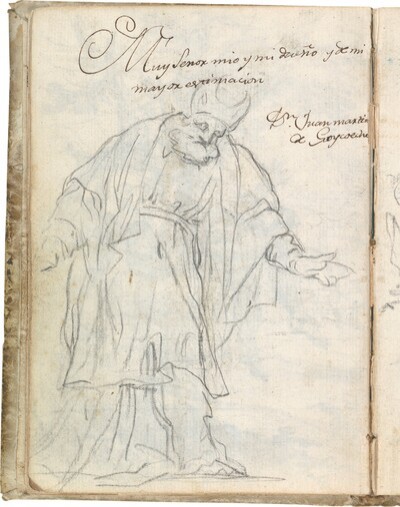 Muy Señor mio y mi dueño y de mi
mayor estimacion
Dn. Juan martin
de Goycoechea